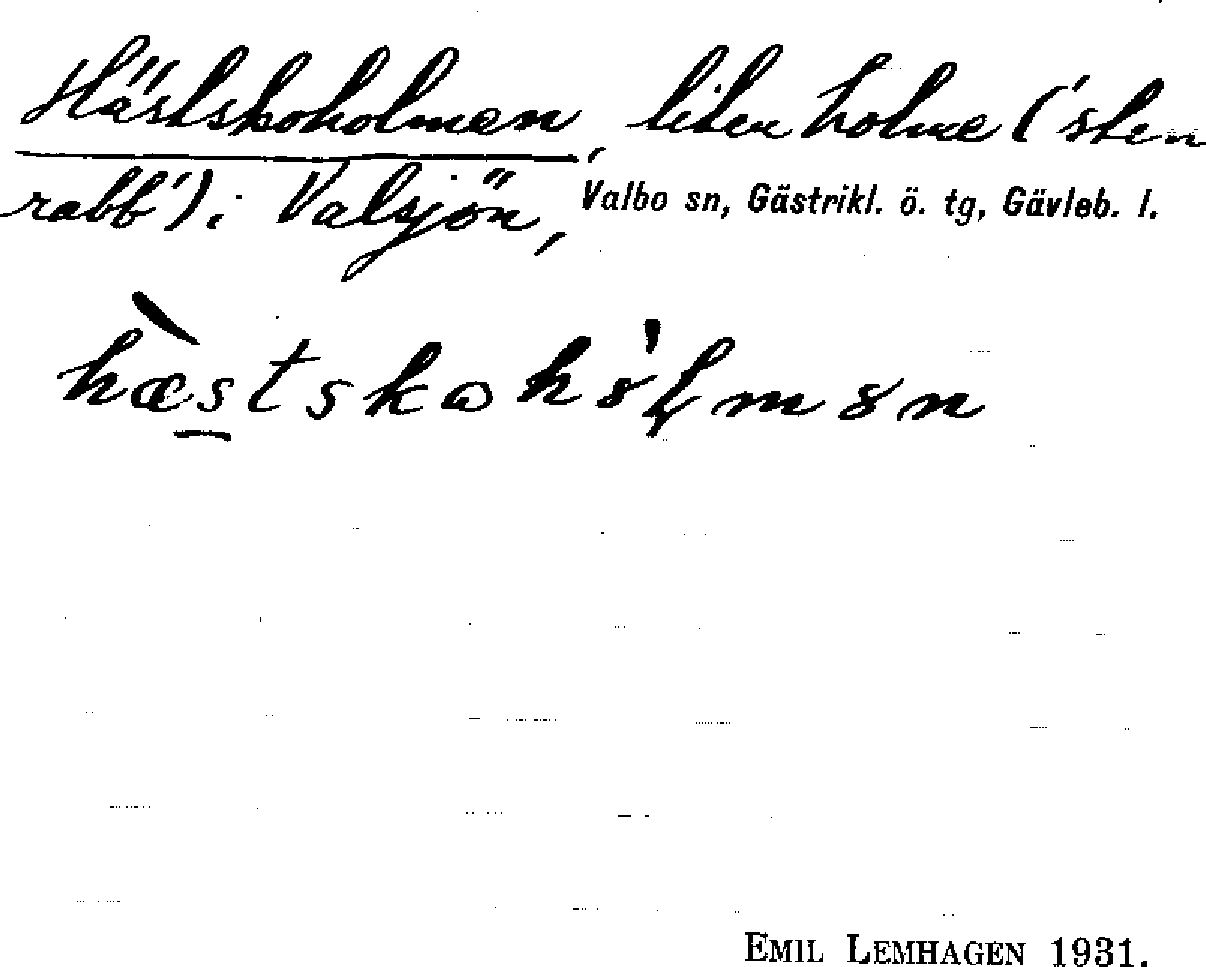 Hästskoholmen, liten holme ('sten
rabb') i Valsjön, Valbo sn, Gästrikl. ö. tg, Gävleb. l.
EMIL LEMHAGEN 1931.